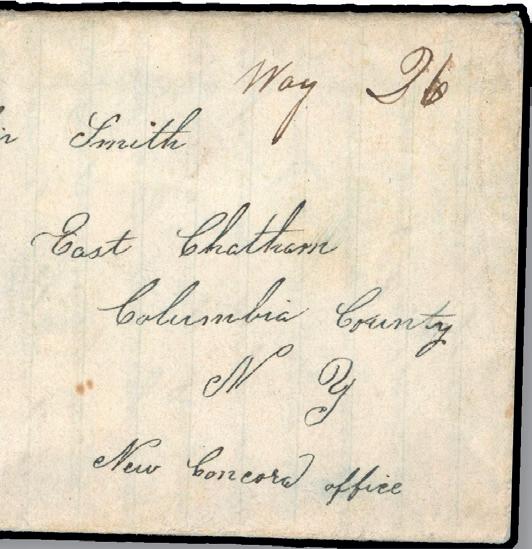 Way 26
Smith
East Chatham
Columbia County
N Y
New Concord office